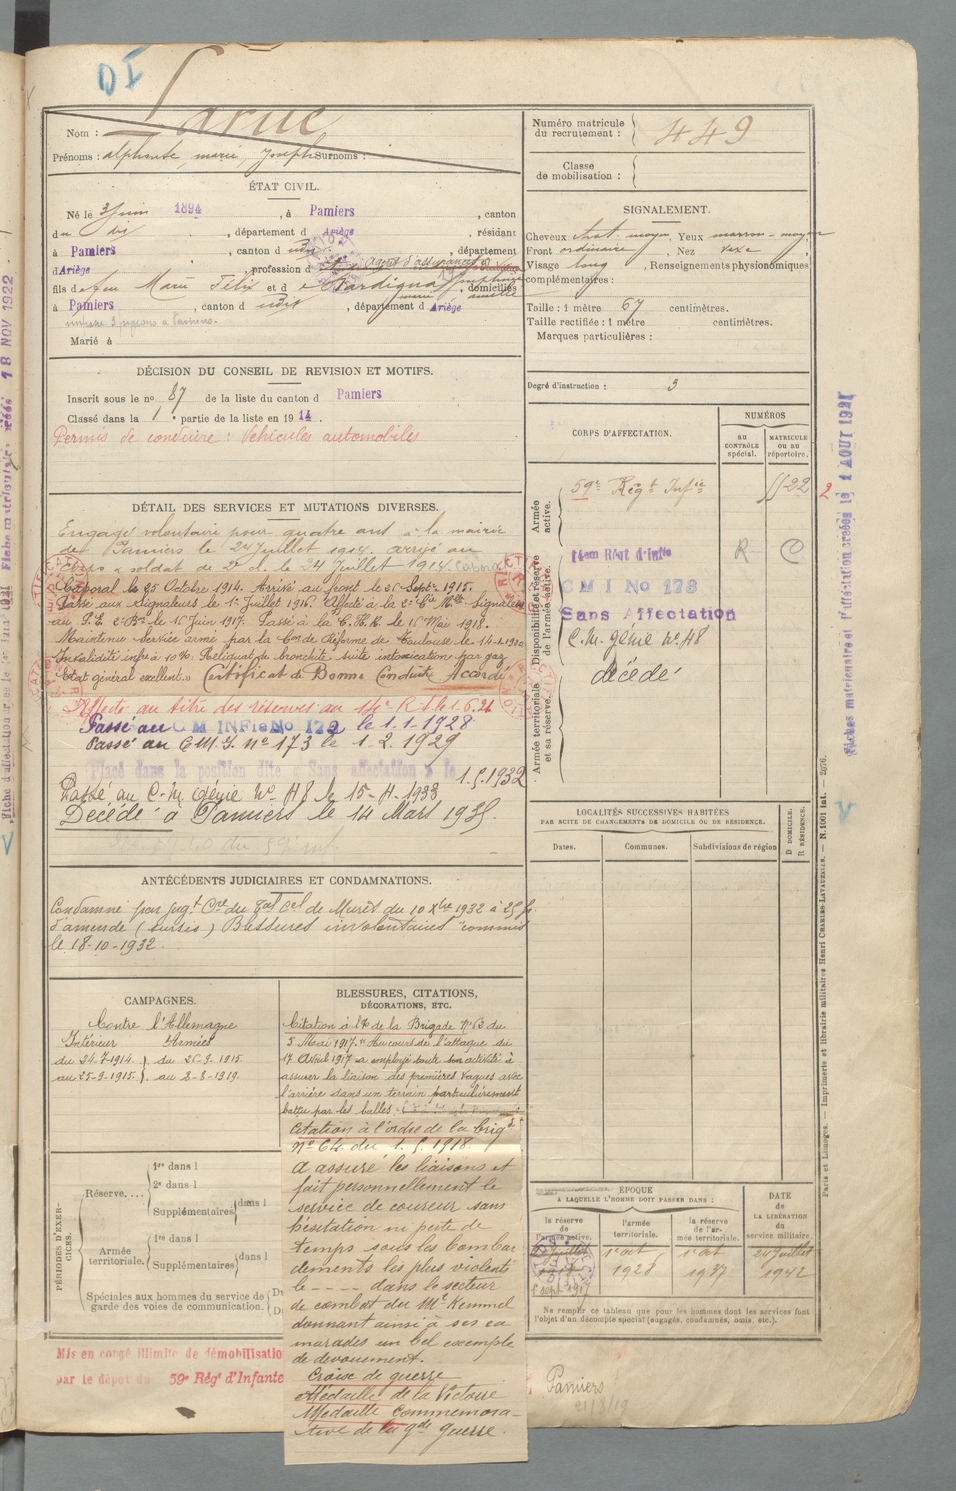 DI
Larue
Nom :
Prénoms : alphonse, marie, Joseph Surnoms :
Numéro matricule du recrutement : 449
Classe de mobilisation :
ÉTAT CIVIL.
Né le 3 juin 1894, à Pamiers, canton
du dis, département d Ariège, résidant
à Pamiers, canton d udis, département
d Ariège, profession d agent d'assurances
fils de feu Marie Félix et d e Dardigna, domiciliés
à Pamiers, canton d udis, département d Ariège
Marié à
SIGNALEMENT.
Cheveux chat. moyen, Yeux marron-moyen
Front ordinaire, Nez vexe,
Visage long, Renseignements physionomiques
complémentaires :
Taille : 1 mètre 67 centimètres.
Taille rectifiée : 1 mètre centimètres.
Marques particulières :
Degré d'instruction : 3
DÉCISION DU CONSEIL DE REVISION ET MOTIFS.
Inscrit sous le no 87 de la liste du canton d Pamiers
Classé dans la 1 e partie de la liste en 1914.
Permis de conduire : Véhicules automobiles
CORPS D'AFFECTATION.
NUMÉROS
AU CONTRÔLE spécial.
MATRICULE OU AU répertoire.
Armée active.
59e Régt Infie
1122
2
Disponibilité et réserve de l'armée active.
14em Régt d'Infie
R
C
C M I No 173
Sans Affectation
C.M. génie No 48
décédé
Armée territoriale et sa réserve.
DÉTAIL DES SERVICES ET MUTATIONS DIVERSES.
Engagé volontaire pour quatre ans à la mairie
de Pamiers le 24 Juillet 1914. arrivé au
corps & soldat de 2e cl. le 24 Juillet 1914. Caporal
Caporal le 25 Octobre 1914. Arrivé au front le 25 Septre 1915.
Passé aux Signaleurs le 1er Juillet 1916. Affecté à la 2e Cie Mlle Signaleur
au P.E. 2e Bon le 15 Juin 1917. Passé à la C.H.R. le 15 Mai 1918.
Maintenu Service armé par la Con de Réforme de Toulouse le 14-1-1920
Invalidité infre à 10%. Reliquat de bronchite suite intoxication par gaz
Etat général excellent.» Certificat de Bonne Conduite Accordé
Affecté au titre des réserves au 14e R.I. le 1.6.21
Passé au C M INFie No 173 le 1.1.1928
Passé au C.M.I. no 173 le 1.2.1929
Placé dans la position dite « Sans affectation » le 1.5.1932
Passé au C.M. Génie No 48 le 15-4-1933
Décédé à Pamiers le 14 Mars 1935.
LOCALITÉS SUCCESSIVES HABITÉES
PAR SUITE DE CHANGEMENTS DE DOMICILE OU DE RÉSIDENCE.
Dates.
Communes.
Subdivisions de région
D DOMICILE.
R RÉSIDENCE.
ANTÉCÉDENTS JUDICIAIRES ET CONDAMNATIONS.
Condamné par jugt Cel du Tal Cel de Muret du 10 Xbre 1932 à 25 fr
d'amende (sursis) Blessures involontaires commis
le 18-10-1932.
CAMPAGNES.
Contre l'Allemagne
Intérieur Armées
du 24-7-1914. } du 26-9-1915.
au 25-9-1915. } au 2-8-1919.
BLESSURES, CITATIONS,
DÉCORATIONS, ETC.
Citation à l'Ore de la Brigade No 63 du
5 Mai 1917. "Au cours de l'attaque du
17 Avril 1917 a employé toute son activité à
assurer la liaison des premières vagues avec
l'arrière dans un terrain particulièrement
battu par les balles.
Citation à l'ordre de la brigde
No 64 du 1.5.1918
A assuré les liaisons et
fait personnellement le
service de coureur sans
hésitation ni perte de
temps sous les bombar
dements les plus violents
le ---- dans le secteur
de combat du Mt Kemmel
donnant ainsi à ses ca
marades un bel exemple
de dévouement.
Croix de guerre
Médaille de la Victoire
Médaille Commémora-
tive de la gde guerre.
PÉRIODES D'EXERCICES.
Réserve....
1re dans l
2e dans l
Supplémentaires dans l
Armée territoriale.
1re dans l
Supplémentaires dans l
Spéciales aux hommes du service de
garde des voies de communication.
ÉPOQUE
A LAQUELLE L'HOMME DOIT PASSER DANS :
la réserve de l'armée active.
l'armée territoriale.
la réserve de l'armée territoriale.
DATE de LA LIBÉRATION du service militaire.
1 sept 1917
1er oct 1928
1er oct 1937
24 Juillet 1942
Ne remplir ce tableau que pour les hommes dont les services font
l'objet d'un décompte spécial (engagés, condamnés, omis, etc.).
Mis en congé illimité de démobilisation
par le dépôt du 59e Régt d'Infante
Pamiers
21/8/19
Paris et Limoges. — Imprimerie et librairie militaires Henri CHARLES-LAVAUZELLE. — N. 1001 bis. — 2676.
Fiches matriculaire et d'affectation créées le 1 AOUT 1921
18 NOV 1922